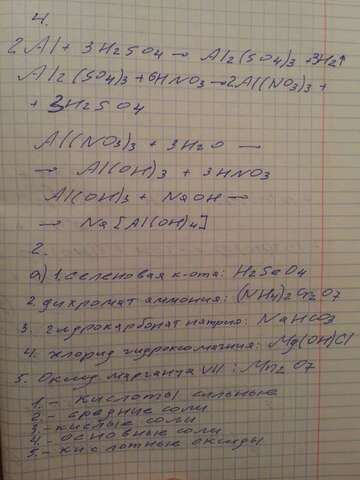 4.
2Al + 3H2SO4 → Al2(SO4)3 + 3H2↑
Al2(SO4)3 + 6HNO3 → 2Al(NO3)3 +
+ 3H2SO4
Al(NO3)3 + 3H2O →
→ Al(OH)3 + 3HNO3
Al(OH)3 + NaOH →
→ Na[Al(OH)4]
2.
а) 1. селеновая к-ота: H2SeO4
2 дихромат аммония: (NH4)2Cr2O7
3. гидрокарбонат натрия: NaHCO3
4. хлорид гидроксомагния: Mg(OH)Cl
5. Оксид марганца VII: Mn2O7
1. – кислота сильные
2 – средние соли
3. – кислые соли
4. – основные соли
5. – кислотные оксиды